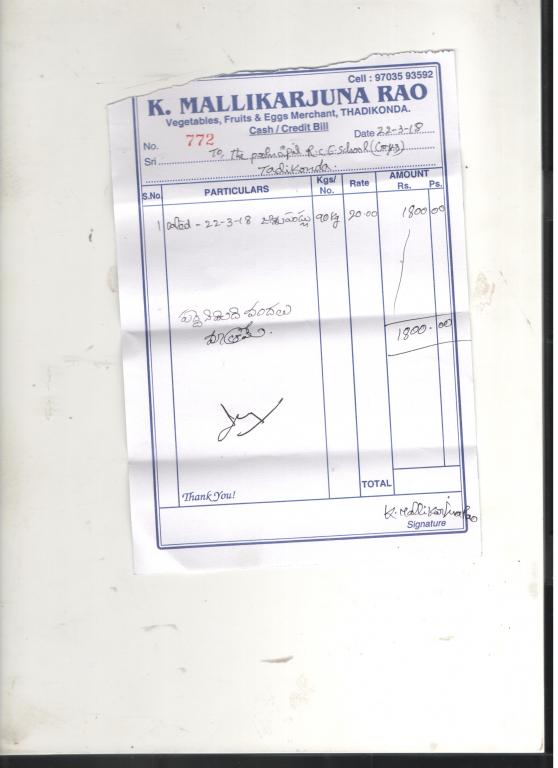 Cell : 97035 93592
K. MALLIKARJUNA RAO
Vegetables, Fruits & Eggs Merchant, THADIKONDA.
Cash / Credit Bill
No. 772 Date 22-3-18
Sri To, The principal School
Tadikonda.
S.No. PARTICULARS Kgs/ No. Rate AMOUNT Rs. Ps.
1 - 22-3-18 90kg 20.00 1800 00
మాత్రమే.
1800.00
Thank You! TOTAL
K. Mallikarjuna Rao
Signature